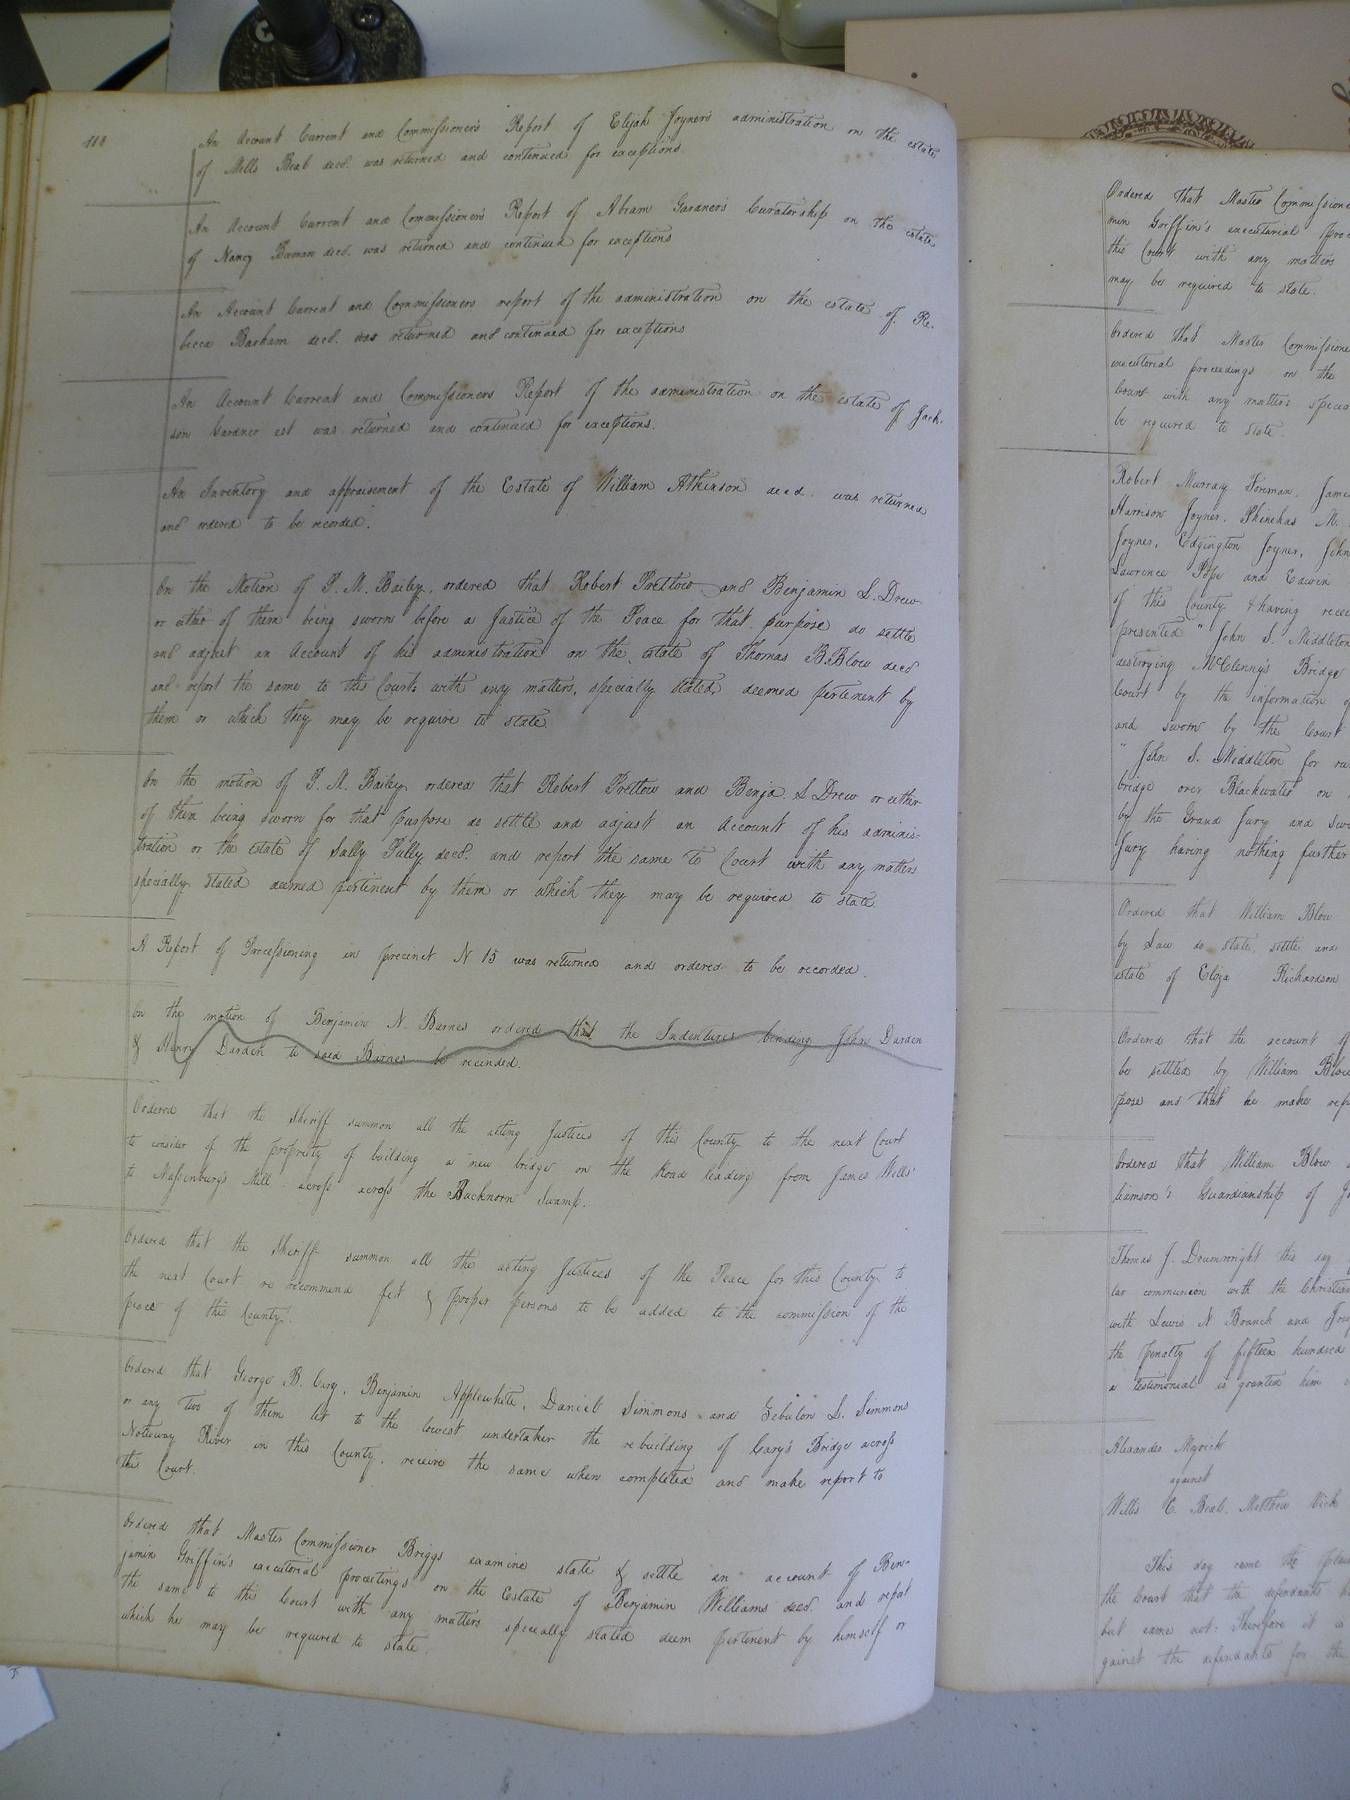 118
An Account Current and Commissioner's Report of Elijah Joyner's administration on the estate
of Mills Beal decd. was returned and continued for exceptions.
An Account Current and Commissioner's Report of Abram Gardner's Curatorship on the estate
of Nancy Beeman decd. was returned and continued for exceptions
An Account Current and Commissioners report of the administration on the estate of Re-
becca Barham decd. was returned and continued for exceptions
An Account Current and Commissioners Report of the administration on the estate of Jack-
son Gardner est was returned and continued for exceptions.
An Inventory and appraisement of the Estate of William Atkinson decd. was returned
and ordered to be recorded.
On the Motion of P. M. Bailey, ordered that Robert Pretlow and Benjamin S. Drew
or either of them being sworn before a Justice of the Peace for that purpose do settle
and adjust an Account of his administration on the estate of Thomas B. Blow decd
and report the same to this Court with any matters, specially stated, deemed pertinent by
them or which they may be require to state
On the motion of P. M. Bailey ordered that Robert Pretlow and Benja. S. Drew or either
of them being sworn for that purpose do settle and adjust an Account of his adminis-
tration or the estate of Sally Pully decd. and report the same to Court with any matters
specially stated deemed pertinent by them or which they may be required to state
A Report of Processioning in precinct N 15 was returned and ordered to be recorded.
On the motion of Benjamin N. Barnes ordered that the Indentures binding John Darden
& Henry Darden to said Barnes be recinded.
Ordered that the Sheriff summon all the acting Justices of this County to the next Court
to consider of the propriety of building a new bridge on the Road leading from James Wells'
to Massenburg's Mill across across the Buckhorn Swamp.
Ordered that the Sheriff summon all the acting Justices of the Peace for this County to
the next Court to recommend fit & proper persons to be added to the commission of the
peace of this County.
Ordered that George B. Cary, Benjamin Applewhite, Daniel Simmons and Zebulon S. Simmons
or any Two of them let to the lowest undertaker the rebuilding of Cary's Bridge across
Nottoway River in this County, receive the same when completed and make report to
the Court.
Ordered that Master Commissioner Briggs examine state & settle an account of Ben-
jamin Griffin's executorial proceedings on the Estate of Benjamin Williams decd. and report
the same to the Court with any matters specially stated deem pertinent by himself or
which he may be required to state.
Ordered that Master Commissione
min Griffin's executorial proce
this Court with any matters
may be required to state.
Ordered that Master Commissione
executorial proceedings on the
Court with any matters specia
be required to state.
Robert Murray Foreman, Jame
Harrison Joyner, Phinehas M.
Joyner, Edgington Joyner, John
Lawrence Pope and Edwin
of this County & having recei
presented " John S. Middleton
destroying McClenny's Bridge
Court by the information of
and sworn by the Court
" John S. Middleton for
bridge over Blackwater on
by the Grand Jury and swo
Jury having nothing further
Ordered that William Blow
by Law do state, settle and
estate of Eliza Richardson
Ordered that the account of
be settled by William Blow
pose and that he make repo
Ordered that William Blow
liamson's Guardianship of
Thomas J. Drumwright this day
lar communion with the Christian
with Lewis N. Branch and
the penalty of fifteen hundred
a testimonial is granted him
Alexander Myrick
against
Wills C. Beal, Matthew Vick
This day came the plain
the Court that the defendants
but came not: Therefore it is
gainst the defendants for the